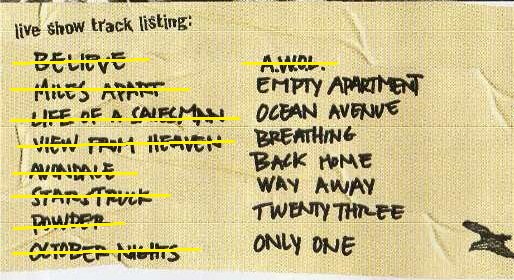 live show track listing:
BELIEVE
MILES APART
LIFE OF A SALESMAN
VIEW FROM HEAVEN
AVONDALE
STARSTRUCK
POWDER
OCTOBER NIGHTS
A.W.O.L.
EMPTY APARTMENT
OCEAN AVENUE
BREATHING
BACK HOME
WAY AWAY
TWENTY THREE
ONLY ONE